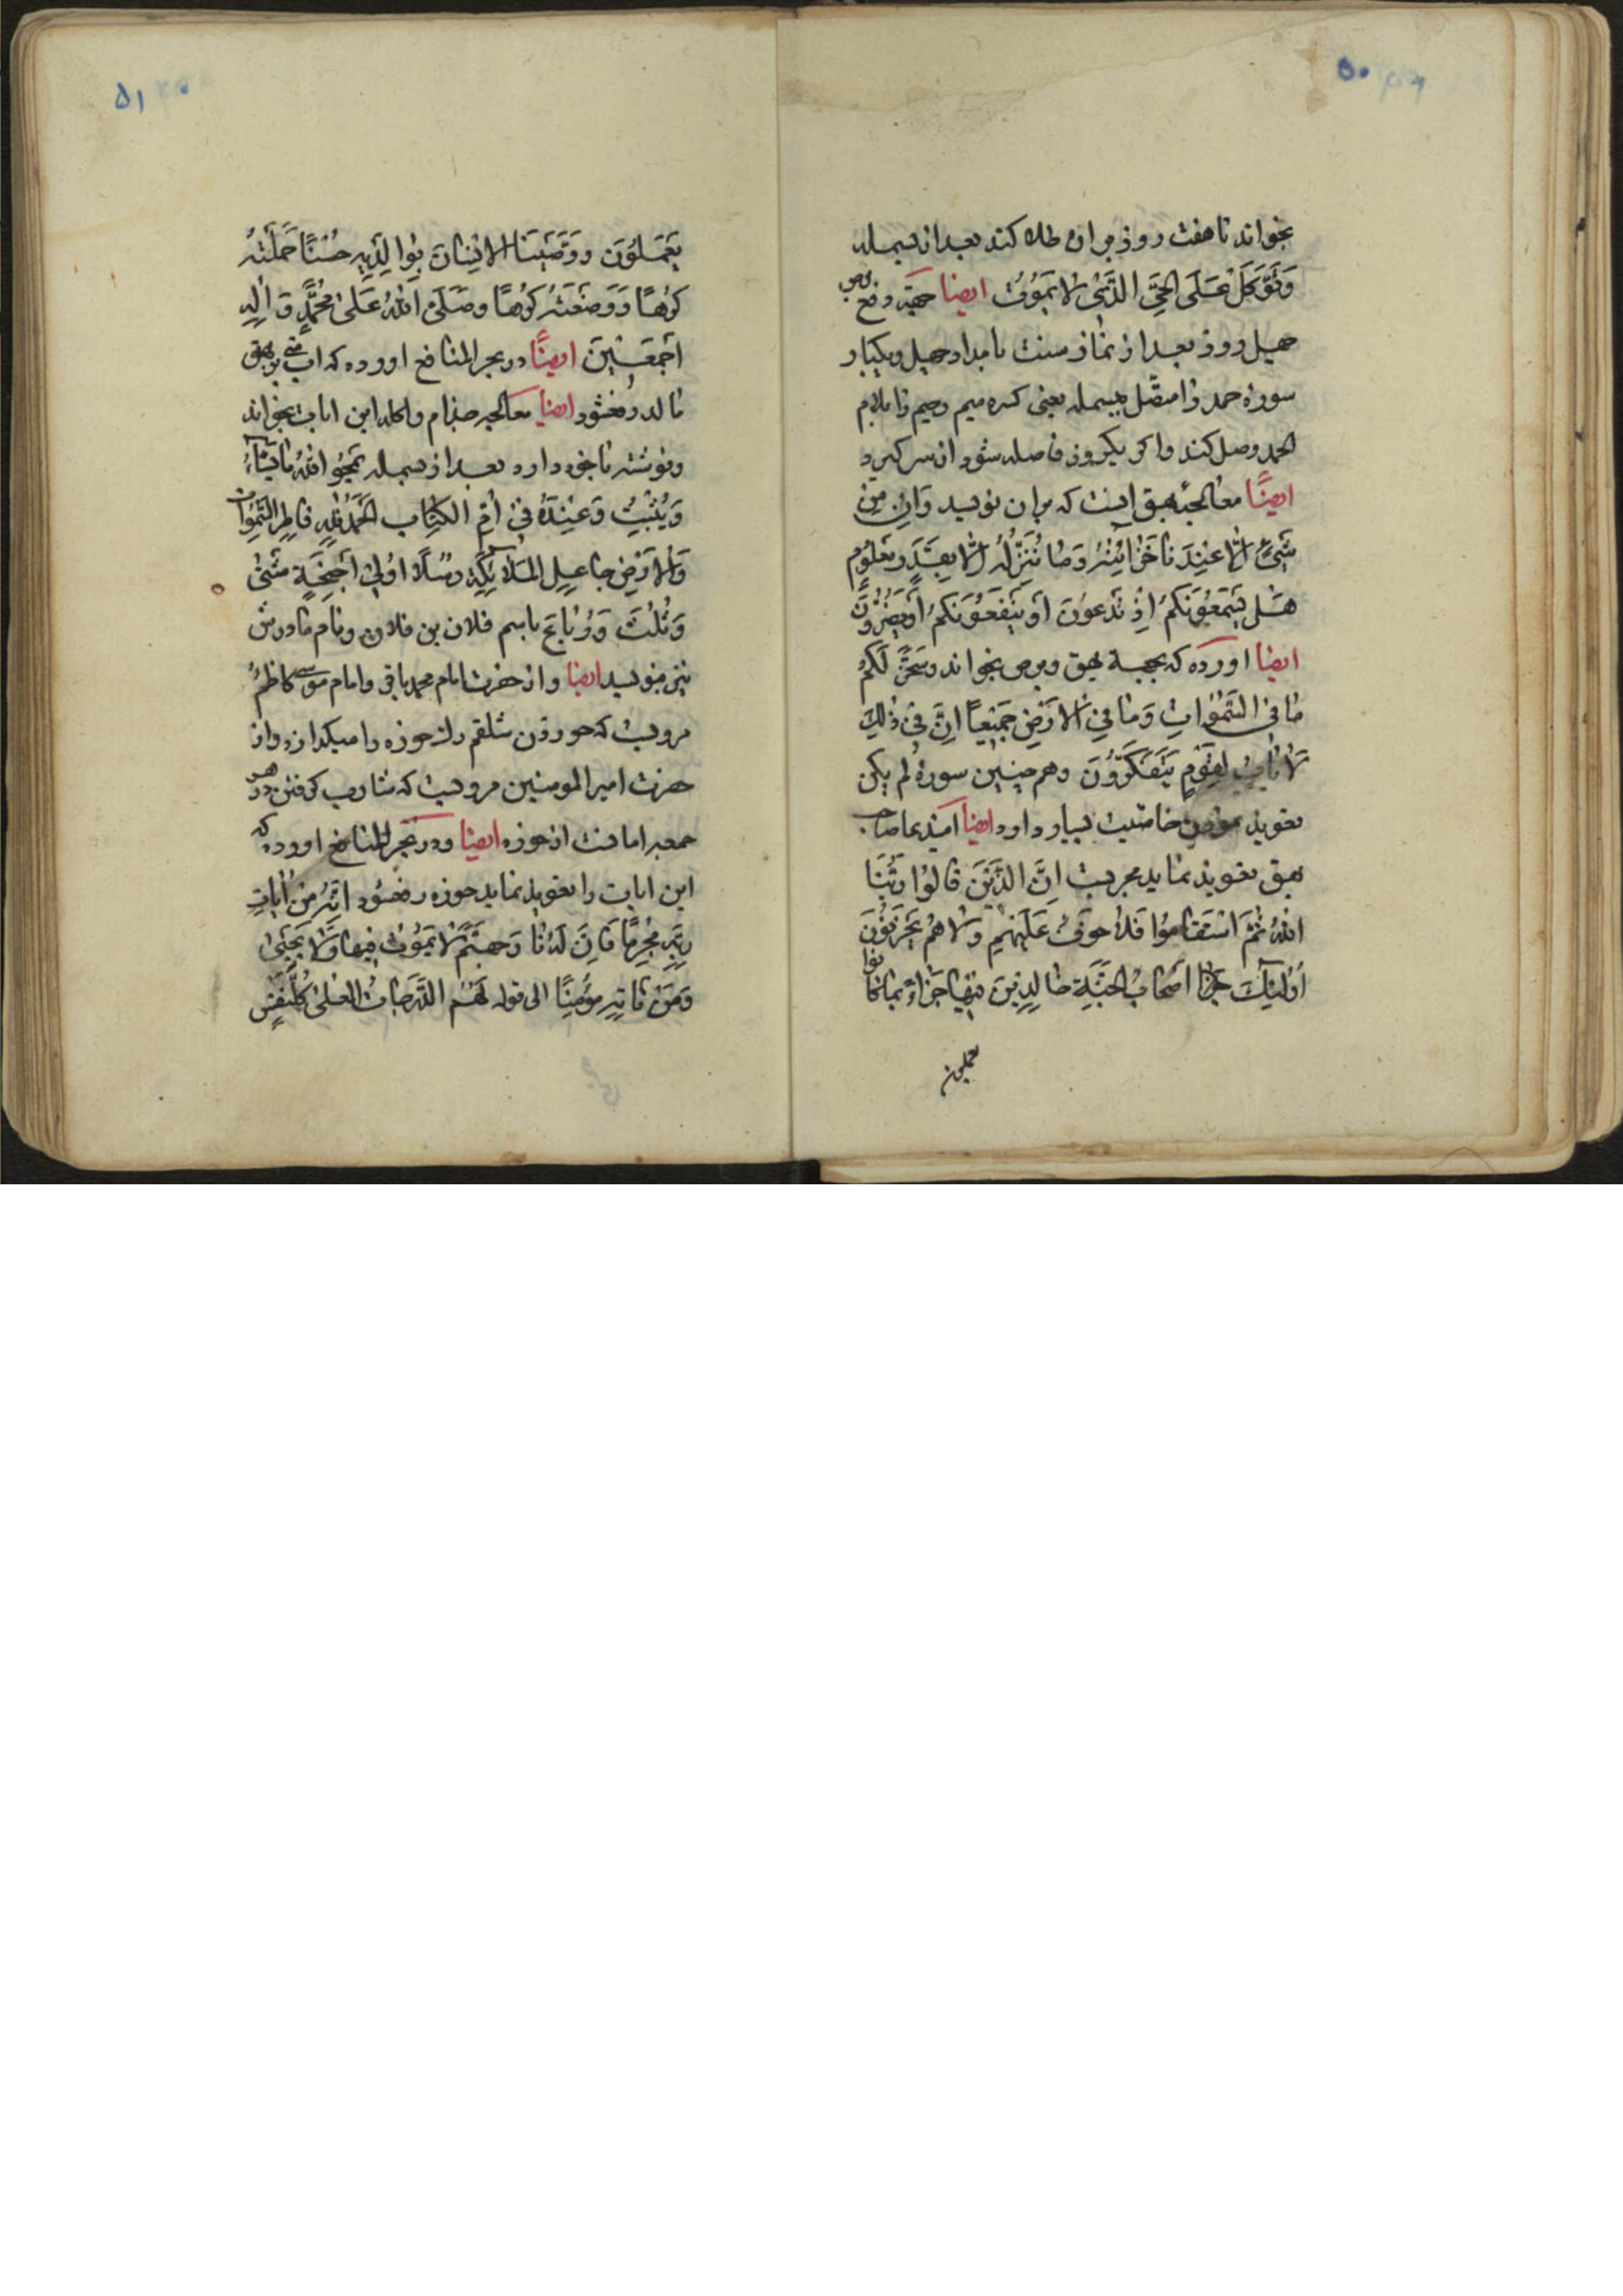 ۵۰
بخواند تا هفت روز بر ان طلا کند بعد از بسمله
وَتَوَکَّلْ عَلَی الحَیِّ الَّذی لا یَمُوتُ ایضا جهة دفع برص
چهل روز بعد از نماز سنت بامداد چهل و یکبار
سورهٔ حمد را متصل ببسمله یعنی کسره میم رحیم را بلام
الحمد وصل کند و اکر یکروز فاصله شود از سر کیرد
ایضًا معالجهٔ بهق اینست که بر ان نویسد وَاِن مِن
شَیءٍ اِلّا عِندَنا خَزائِنُهُ وَما نُنَزِّلُهُ اِلّا بِقَدَرٍ مَعلُومٍ
هَل یَسمَعُونَکُم اِذ تَدعوُنَ اَو یَنفَعُونَکُم اَو یَضُرُّونَ
ایضا اورده که بجهة بهق و برص بخواند وسَخَّرَ لَکُم
ما فِی السَّمٰواتِ وَما فِی الاَرضِ جَمیعاً اِنَّ فی ذٰلِکَ
لَاٰیاتٍ لِقَومٍ یَتَفَکَّرُونَ وهم چنین سورهٔ لم یکن
تعویذ خاصیت بسیار دارد ایضا
بهق تعویذ نماید مجربست اِنَّ الَّذینَ قالُوا رَبُّنَا
اللهُ ثُمَّ استَقامُوا فَلا خوفٌ عَلَیهِم وَلا هُم یَحزَنُونَ
اُولئِکَ اَصحابُ الجَنَّةِ خالِدینَ فیها جَزاءً بِما کانُوا
یعملون
۵۱
یَعمَلُونَ وَوَصَّینَا الاِنسانَ بِوالِدَیهِ حُسنًا حَمَلَتهُ
کُرهًا وَوَضَعَتهُ کُرهًا وصَلَّی اللهُ عَلٰی مُحَمَّدٍ وَ اٰلِهِ
اَجمَعینَ ایضًا در بحر المنافع اورده که اب منی بر بهق
مالد رفعشود ایضا معالجه جذام واکله این ایات بخواند
ونوشته با خود دارد بعد از بسمله یَمحُو اللهُ ما یَشاءُ
وَیُثبِتُ وَعِندَهُ اُمُّ الکِتابِ اَلحَمدُ لِلّهِ فاطِرِ السَّمٰواتِ
وَالاَرضِ جاعِلِ المَلائِکَةِ رُسُلًا اُولی اَجنِحَةٍ مَثنٰی
وَثُلٰثَ وَرُباعَ باسم فلان بن فلان ونام مادرش
نیز بنویسد ایضا و از حضرت امام محمد باقر و امام موسی کاظم
مرویست که خوردن شلقم رک خوره را میکدازد واز
حضرت امیر المومنین مرویست که شارب کرفتن در هر
جمعه امانست از خوره ایضا ودر بحر المنافع اورده که
این ایات را تعویذ نماید خوره رفعشود اِنَّهُ مَن یَأتِ
رَبَّهُ مُجرِمًا فَاِنَّ لَهُ جَهَنَّمَ لا یَمُوتُ فیها وَلا یَحیٰی
وَمَن یَأتِهِ مُؤمِنًا الی قوله لَهُمُ الدَّرَجاتُ العُلٰی کُلُّ نَفسٍ